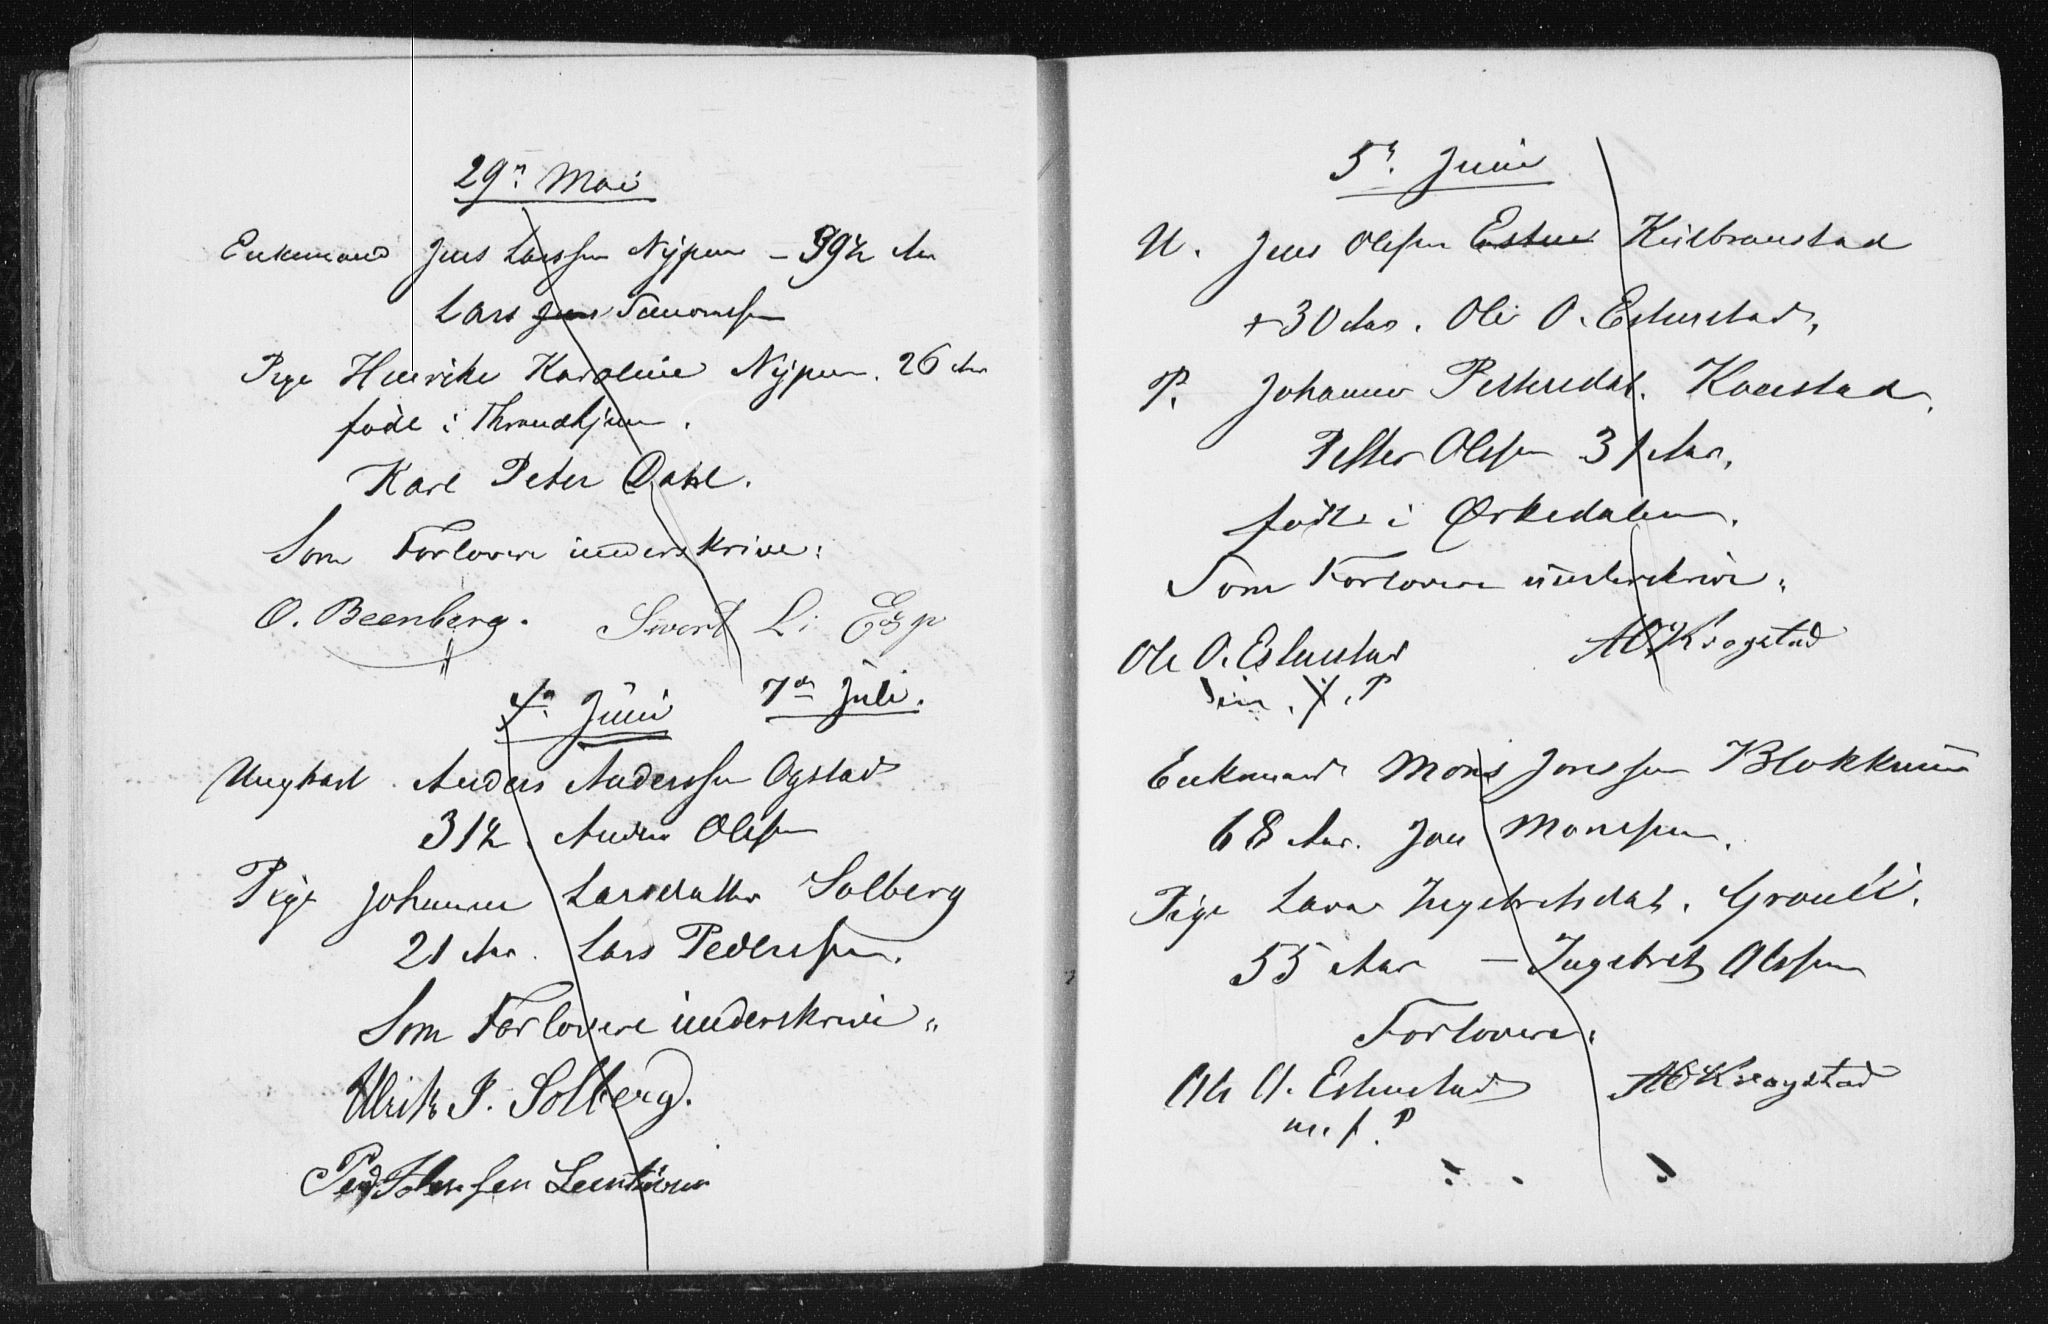 29n Mai
Enkemand Jens Larssen Nypen - 39½ Aar
Lars Jens
Pige Henrike Karoline Nypen. 26 Aar
født i Throndhjem.
Karl Peter Dahl.
Som Forlovere underskrive:
O. Beenberg. Sivert Li Esp
4n Juni 7de Juli.
Ungkarl Anders Anderssen Ogstad
31½. Anders Olssen
Pige Johanna Larsdatter Solberg
21 Aar. Lars Pederssen.
Som Forlovere underskrive:
Ulrik P. Solberg.
Peder Johnsen
5n. Juni
U. Jens Olssen Estens
+30 Aar. Ole O. Estenstad,
P. Johanna Pettersdat. Kvaestad.
Petter Olssen 31 Aar.
født i Ørkedalen.
Som Forlovere underskrive:
Ole O. Estenstad AO Krogstad
P
Enkemand Mons Jonssen Blokkum
68 Aar. Jon Monssen.
Pige Lava Ingebretsdat. Granli.
55 Aar - Ingebret Olssen
Forlovere:
Ole O. Estenstad AO Krogstad
m. f. P